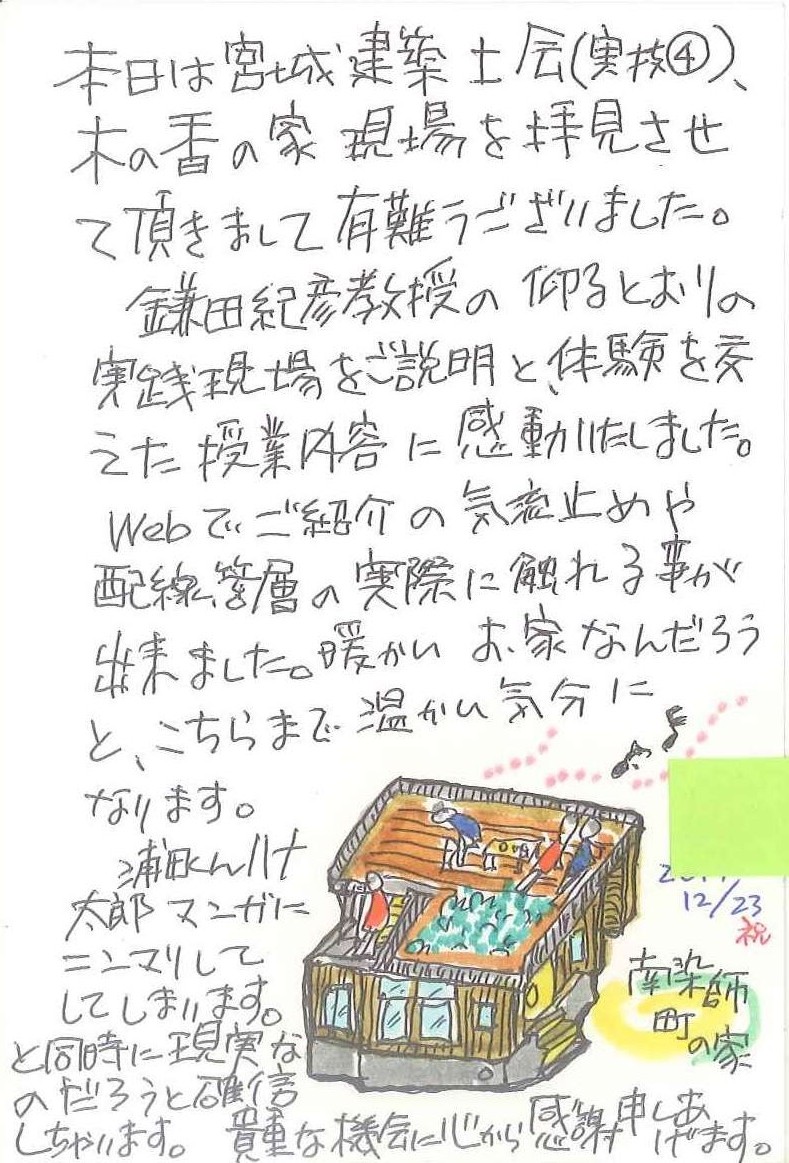 本日は宮城建築士会(実技④)、
木の香の家 現場を拝見させ
て頂きまして有難うございました。
鎌田紀彦教授の 仰るとおりの
実践現場をご説明と、体験を交
えた 授業内容に感動いたしました。
Webでご紹介の気流止めや
配線層の実際に触れる事が
出来ました。暖かい お家なんだろう
と、こちらまで温かい気分に
なります。
太郎マンガに
ニンマリして
してしまいます。
と同時に現実な
のだろうと確信
しちゃいます。 貴重な機会に心から感謝申しあげます。
12/23
祝
南染師
町の家